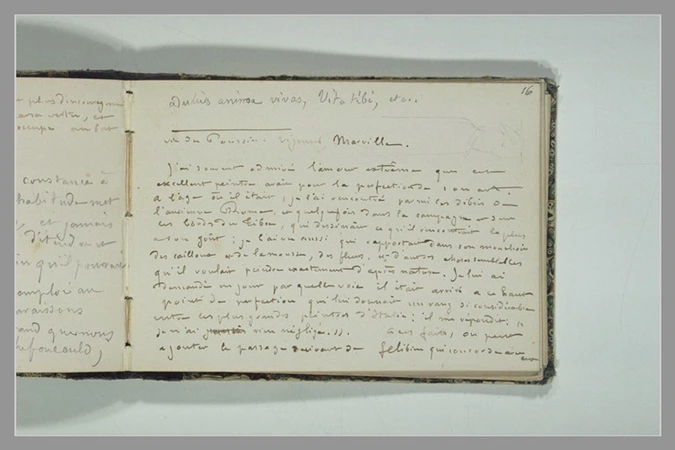 16
Dulcis anima vivas, Vita tibi, etc..
vie du Poussin. vigneul Marville.
J'ai souvent admiré l'amour extrême que cet
excellent peintre avait pour la perfection de son art.
A l'âge où il était, je l'ai rencontré parmi les débris de
l'ancienne Rome, et quelquefois dans la campagne et sur
les bords du Tibre, qui dessinait ce qu'il rencontrait le plus
à son goût; je l'ai vu aussi qui rapportait dans son mouchoir
des cailloux et de la mousse, des fleurs, et d'autres choses semblables
qu'il voulait peindre exactement d'après nature. Je lui ai
demandé un jour par quelle voie il était arrivé à ce haut
point de perfection qui lui donnait un rang si considérable
entre les plus grands peintres d'Italie: il me répondit: "
je n'ai rien négligé.". A ces faits, on peut
ajouter le passage suivant de félibien qui concorde avec
plus
constance à
habitude met
et jamais
qu'il pourrait
emploi au
quemous
hefoucauld,